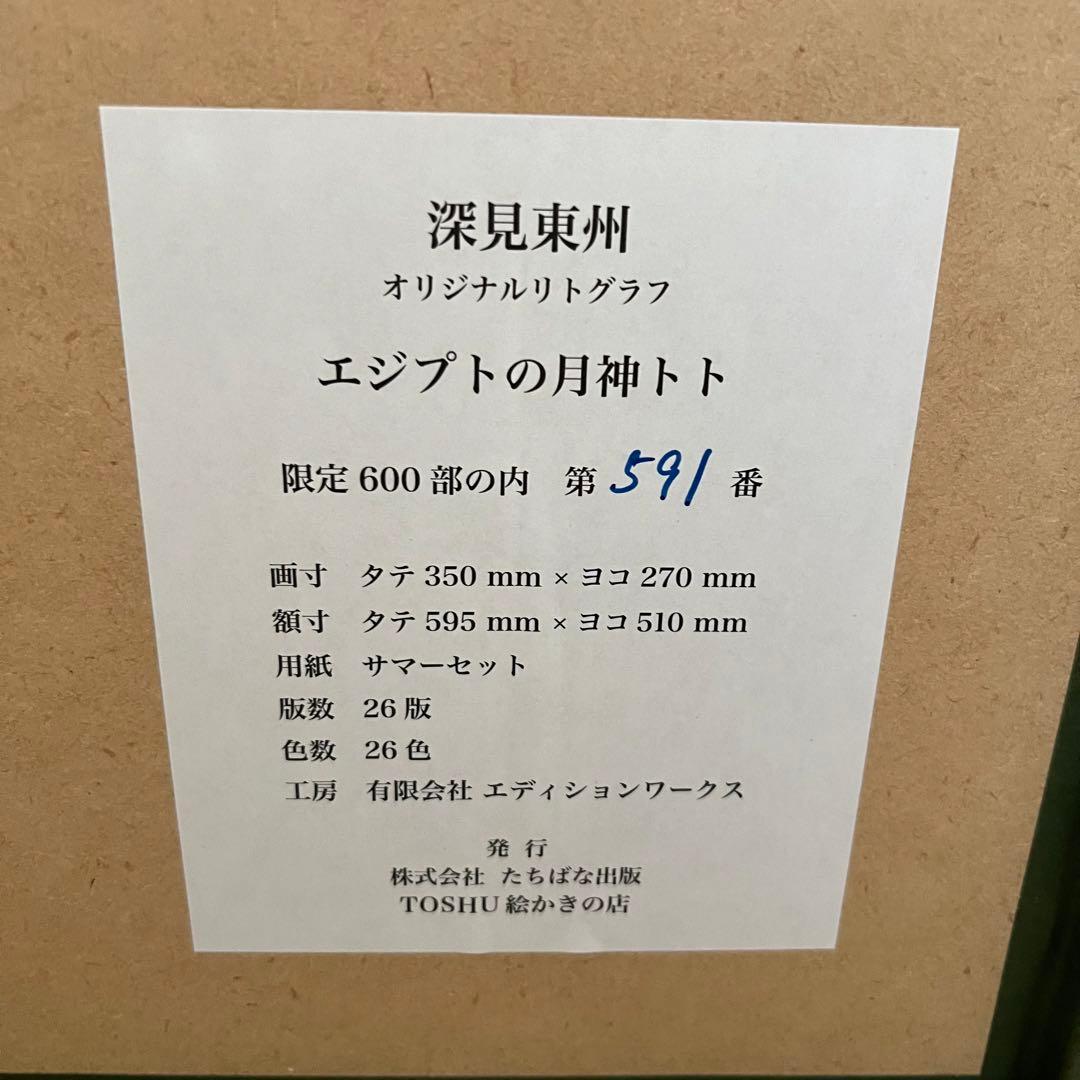 深見東州
オリジナルリトグラフ
エジプトの月神トト
限定600部の内 第591番
画寸 タテ350 mm × ヨコ270 mm
額寸 タテ595 mm × ヨコ510 mm
用紙 サマーセット
版数 26版
色数 26色
工房 有限会社 エディションワークス
発 行
株式会社 たちばな出版
TOSHU絵かきの店